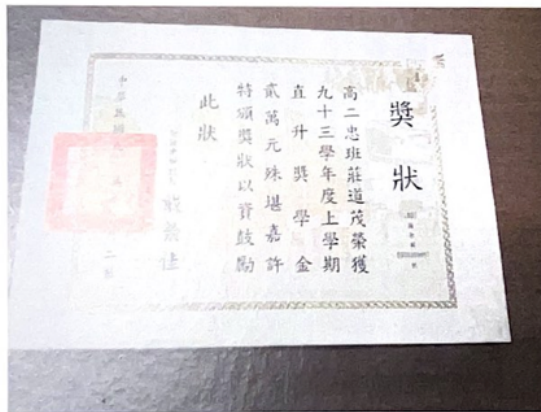 獎狀
高二忠班莊道茂榮獲
九十三學年度上學期
直升獎學金
貳萬元殊堪嘉許
特頒獎狀以資鼓勵
此狀
中華民國